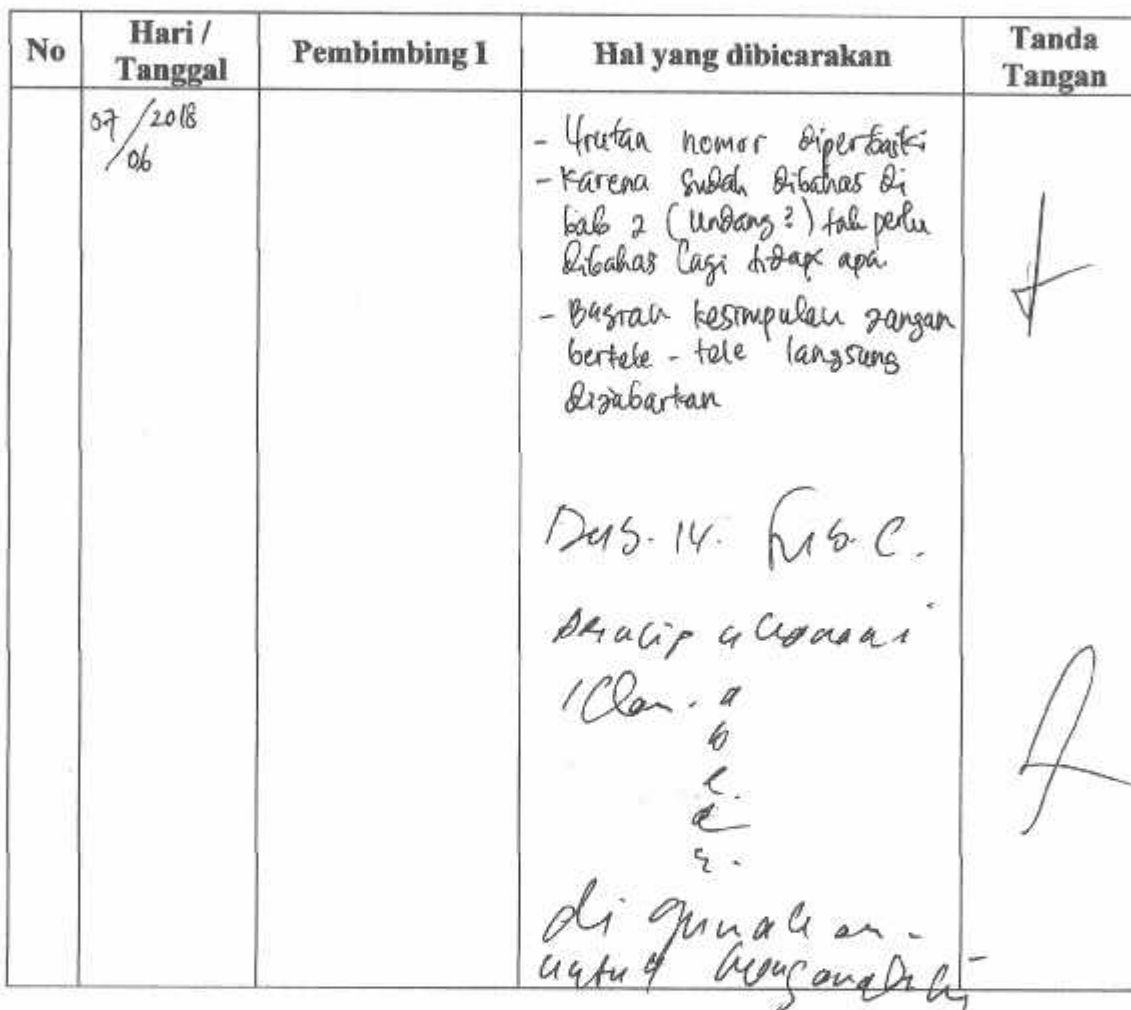 No
Hari /
Tanggal
Pembimbing 1
Hal yang dibicarakan
Tanda
Tangan
07/2018
/06
- Urutan nomor diperbaiki
- Karena sudah dibahas di
bab 2 (Undang²) tak perlu
dibahas lagi tidak apa
- Bagian kesimpulan jangan
bertele - tele langsung
dijabarkan
14.
C.
a
b
c.
d
e.
di gunakan
untuk